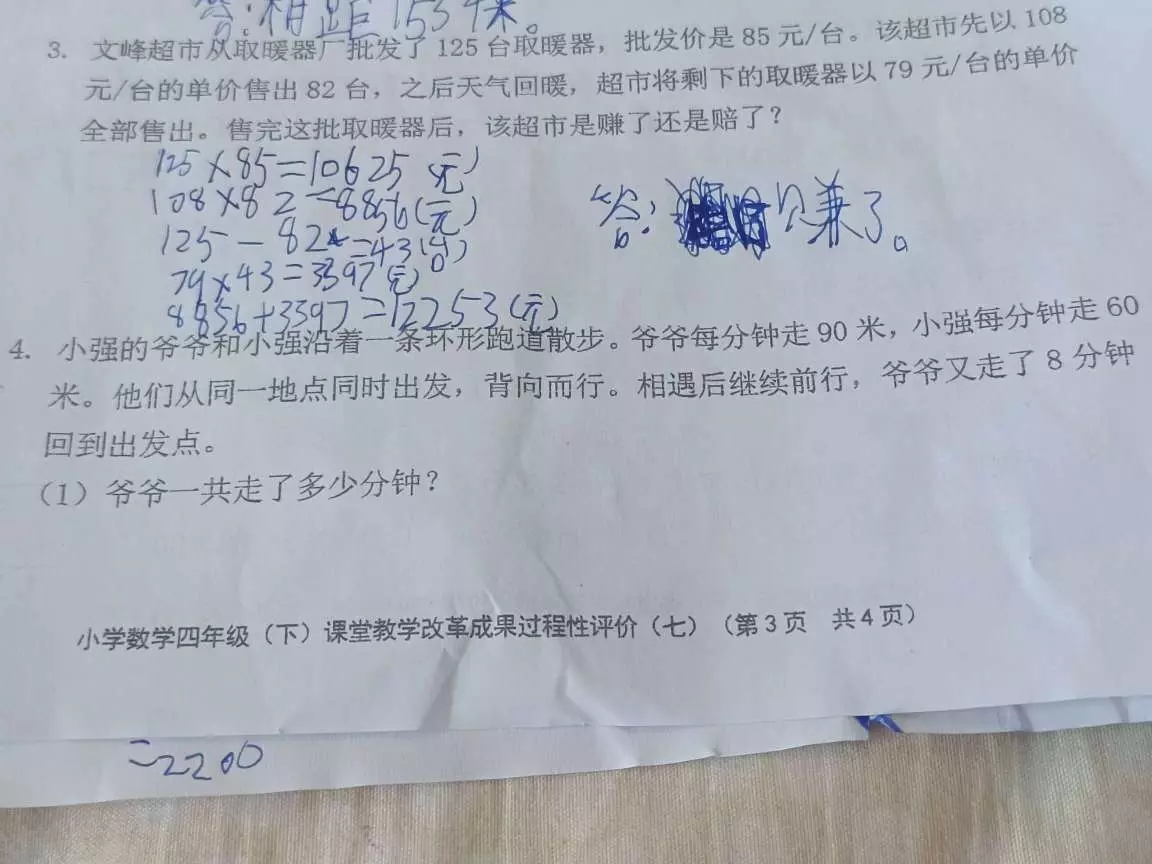 答:相距1534米。
3. 文峰超市从取暖器厂批发了 125 台取暖器，批发价是 85 元/台。该超市先以 108
元/台的单价售出 82 台，之后天气回暖，超市将剩下的取暖器以 79 元/台的单价
全部售出。售完这批取暖器后，该超市是赚了还是赔了？
125×85=10625(元)
108×82=8856(元)
125-82=43(台)
79×43=3397(元)
8856+3397=12253(元)
答: 赚了。
4. 小强的爷爷和小强沿着一条环形跑道散步。爷爷每分钟走 90 米，小强每分钟走 60
米。他们从同一地点同时出发，背向而行。相遇后继续前行，爷爷又走了 8 分钟
回到出发点。
（1）爷爷一共走了多少分钟？
小学数学四年级（下）课堂教学改革成果过程性评价（七）（第 3 页 共 4 页）
=2200